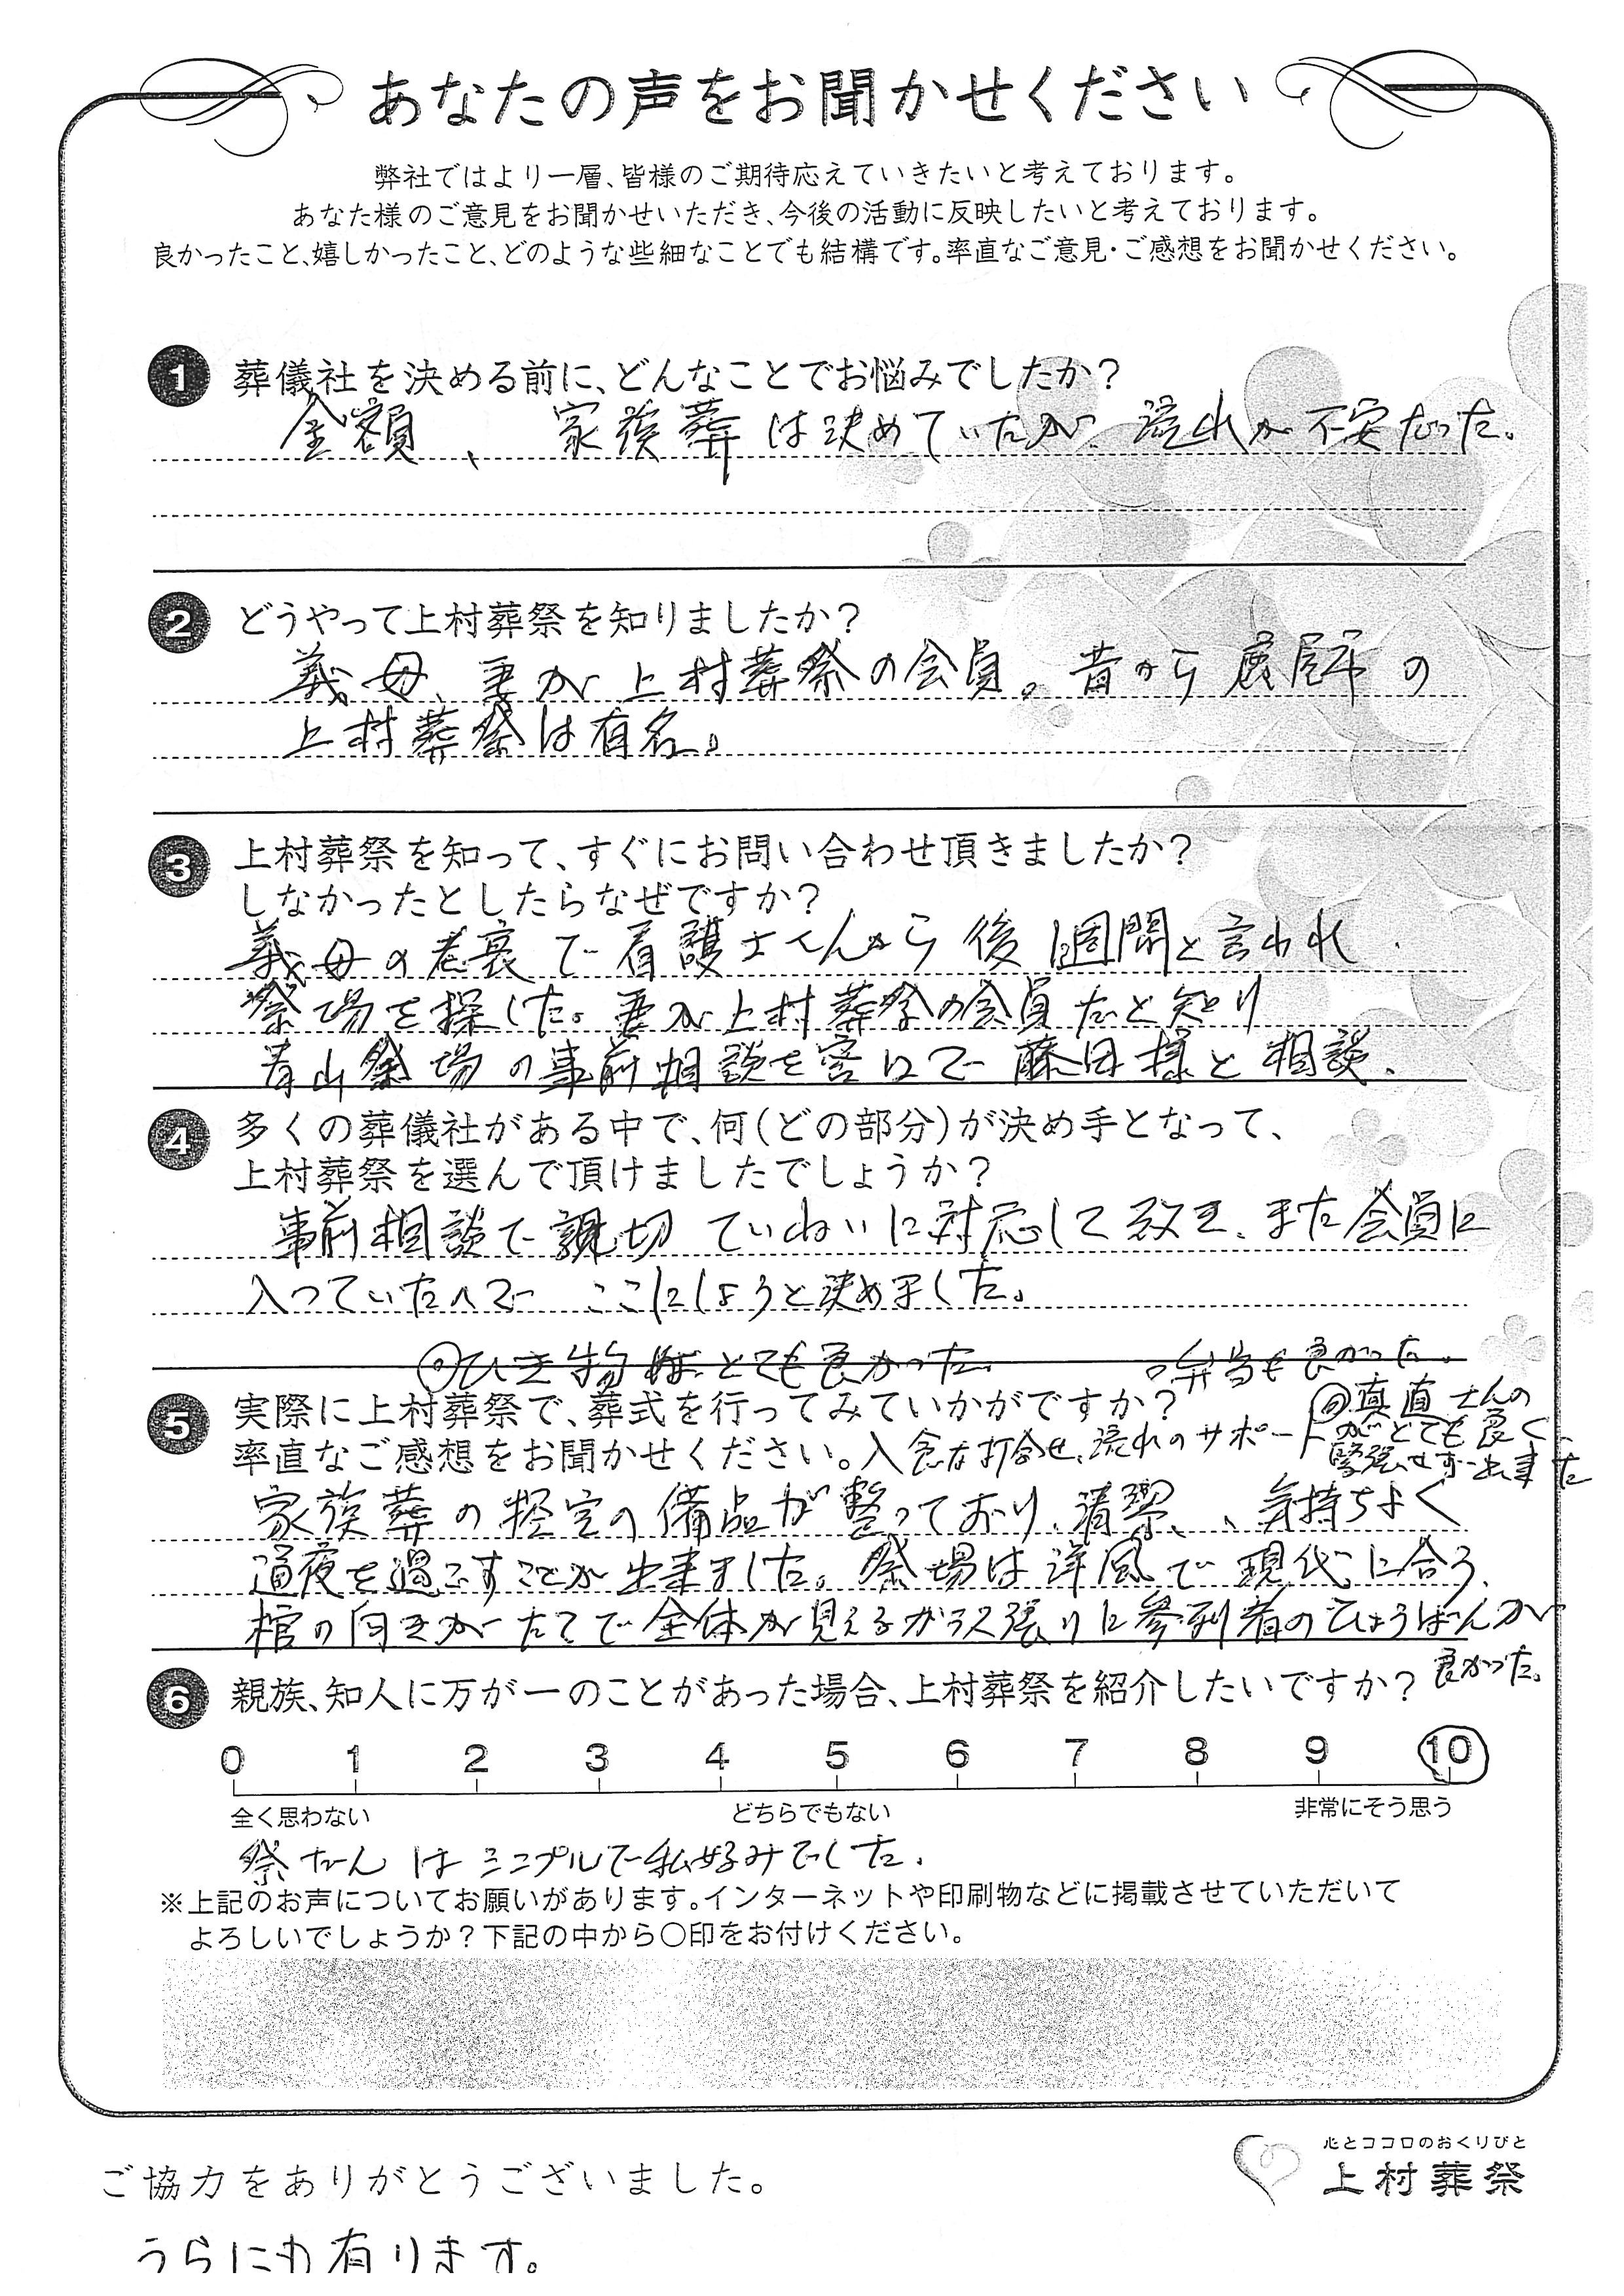 あなたの声をお聞かせください
弊社ではより一層、皆様のご期待応えていきたいと考えております。
あなた様のご意見をお聞かせいただき、今後の活動に反映したいと考えております。
良かったこと、嬉しかったこと、どのような些細なことでも結構です。率直なご意見・ご感想をお聞かせください。
1 葬儀社を決める前に、どんなことでお悩みでしたか？
金額、家族葬は決めていたが、流れが不安だった。
2 どうやって上村葬祭を知りましたか？
義母、妻が上村葬祭の会員。昔から の
上村葬祭は有名。
3 上村葬祭を知って、すぐにお問い合わせ頂きましたか？
しなかったとしたらなぜですか？
義母の老衰で看護士さんから後1週間と言われ、
祭場を探した。妻が上村葬祭の会員だと知り
青山祭場の事前相談を窓口で藤田様と相談。
4 多くの葬儀社がある中で、何（どの部分）が決め手となって、
上村葬祭を選んで頂けましたでしょうか？
事前相談で親切 ていねいに対応して 、また会員に
入っていたので ここにしようと決めました。
◎ひき物 とても良かった。 ○弁当も良かった。
5 実際に上村葬祭で、葬式を行ってみていかがですか？
率直なご感想をお聞かせください。
入念な打合せ、流れのサポート
さんの
がとても良く、
緊張せず出来ました
家族葬の 室の備品が整っており、清潔、、気持ちよく
通夜を過ごすことが出来ました。祭場は洋風で現代に合う、
棺の向きがたてで全体が見えるガラス張りに参列者のひょうばんが
良かった。
6 親族、知人に万が一のことがあった場合、上村葬祭を紹介したいですか？
0 1 2 3 4 5 6 7 8 9 10
全く思わない どちらでもない 非常にそう思う
祭だんはシンプルで私好みでした。
※上記のお声についてお願いがあります。インターネットや印刷物などに掲載させていただいて
よろしいでしょうか？下記の中から○印をお付けください。
ご協力をありがとうございました。
心とココロのおくりびと
上村葬祭
うらにも有ります。